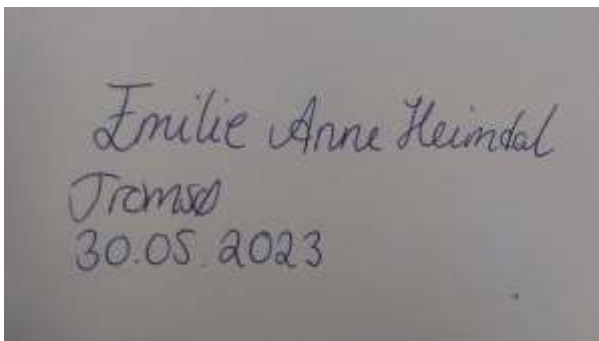 Emilie Anne Heimdal
Tromsø
30.05.2023